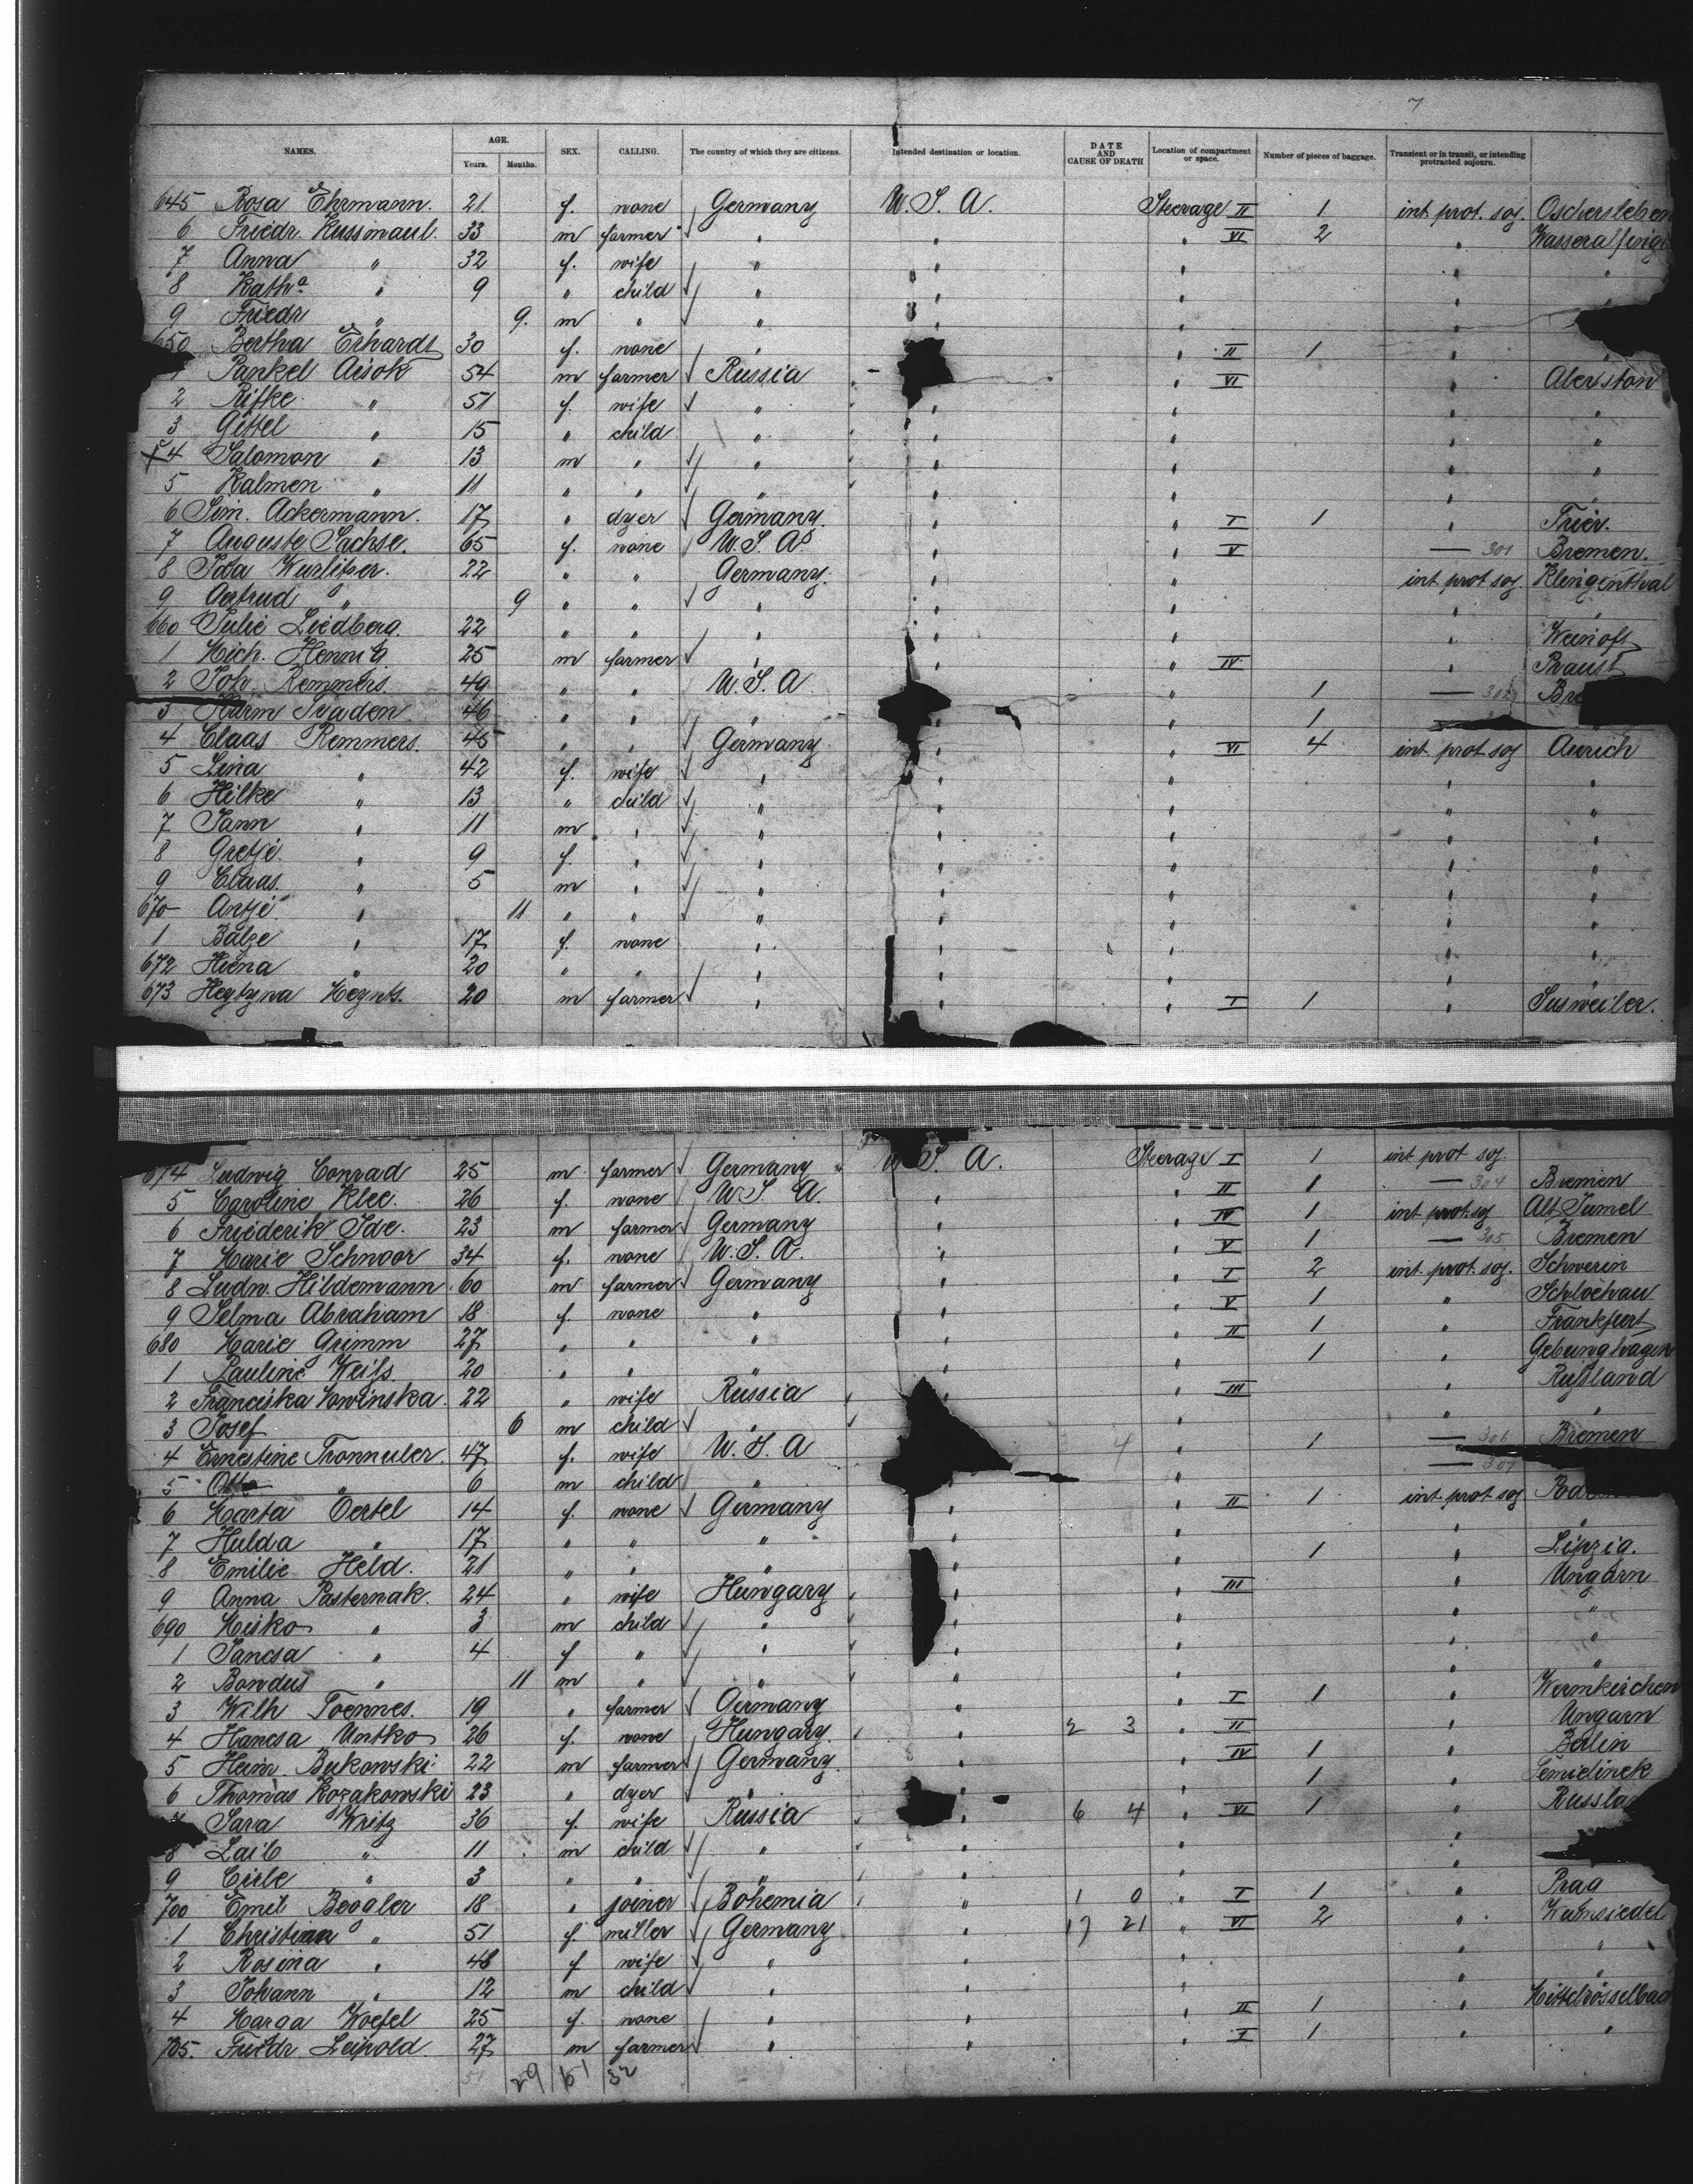 7
NAMES. AGE. Years. Months. SEX. CALLING. The country of which they are citizens. Intended destination or location. DATE AND CAUSE OF DEATH Location of compartment or space. Number of pieces of baggage. Transient or in transit, or intending protracted sojourn.
645 Rosa Ehrmann. 21. f. none Germany U.S.A. Steerage II 1 int. prot. soj. Oschersleben
6 Friedr. Kussmaul. 33 m farmer " " " VI 2 "
7 Anna " 32 f. wife " " " " "
8 Katha " 9 " child " " " "
9 Friedr " 9. m " " " " "
650 Bertha Erhardt 30 f. none " " II 1 " "
Pankel Aisok 54 m farmer Russia " VI "
2 Rifke " 51 f. wife " " " " "
3 Gittel " 15 " child " " " " "
X 4 Salomon " 13 m " " " " " "
5 Kalmen " 11 " " " " " " "
6 Sim. Ackermann. 17 " dyer Germany. " " I 1 " Trier.
7 Auguste Sachse. 65 f. none U.S.A. " " V — 301 Bremen.
8 Ida Wurlitzer. 22 " " Germany. " " int. prot. soj. Klingenthal
9 Gertrud " 9 " " " " " " "
660 Julie Liedberg. 22 " " " " " "
1 Mich. Hennig 25 m farmer " " " IV " Praust
2 Joh. Remmers. 49 " " U.S.A. " 1 — Bre
3 Harm 46 " " " " " 1
4 Claas Remmers. 45 " " Germany " " VI 4 int. prot. soj Aurich
5 Lina " 42 f. wife " " " " "
6 Hilke " 13 " child " " " " "
7 Jann " 11 m " " " " " "
8 Gretje " 9 f. " " " " " "
9 Claas. " 5 m " " " " " "
670 Antje " 11 " " " " " " "
1 Balze " 17 f. none " " " " "
672 Hiena " 20 " " " " " " "
673 20 m farmer " " " I 1 " Susweiler.
674 Ludwig Conrad 25 m farmer Germany U.S.A. Steerage I 1 int. prot soj.
5 Caroline Klee. 26 f. none U.S.A. " " II 1 — 304 Bremen
6 Friederik Ide. 23 m farmer Germany " " IV 1 int. prot. soj Alt Jumel
7 Marie Schnoor 34 f. none U.S.A. " " V 1 — 305 Bremen
8 Ludw. Hildemann 60 m farmer Germany " " I 2 int. prot. soj. Schwerin
9 Selma Abraham 18 f. none " " " V 1 " Schlochau
680 Marie Grimm 27 " " " " " II 1 " Frankfurt
1 Pauline Weiss. 20 " " " " " 1 "
2 Franciska 22 " wife Russia " III " Rußland
3 Josef 6 m child " " " "
4 Ernestine 47 f. wife U.S.A 4 " 1 — 306 Bremen
5 Otto " 6 m child " " — 307
6 Marta Oertel 14 f. none Germany " " II 1 int. prot soj
7 Hulda " 17 " " " " " " "
8 Emilie Held. 21 " " " " " 1 " Lipzig.
9 Anna Pasternak. 24 " wife Hungary " " III " Ungarn
690 Misko " 3 m child " " " " "
1 Jancsa " 4 f " " " " " "
2 Bondus " 11 m " " " " " "
3 Wilh Toennes. 19 " farmer Germany " " I 1 " Wermkirchen
4 Hancsa Untko 26 f. none Hungary. " 2 3 " II " Ungarn
5 Heinr. Bukowski 22 m farmer Germany. " " IV 1 " Berlin
6 Thomas Kozakowski 23 " dyer " " " 1 "
7 Sara Writz 36 f. wife Russia " 6 4 " VI 1 " Russla
8 Laib " 11 m child " " " "
9 Cirle " 3 " " " " " "
700 Emil Beogler 18 " joiner Bohemia " 1 0 " I 1 " Prag
1 Christian " 51 f. miller Germany " 17 21 " VI 2 " Wumsiedel
2 Rosina " 48 f wife " " " " "
3 Johann " 12 m child " " " " "
4 Marga Woefel 25 f. none " " " II 1 "
705. Friedr. Leipold. 27 m farmer " " " I 1 " "
51 29 61 32